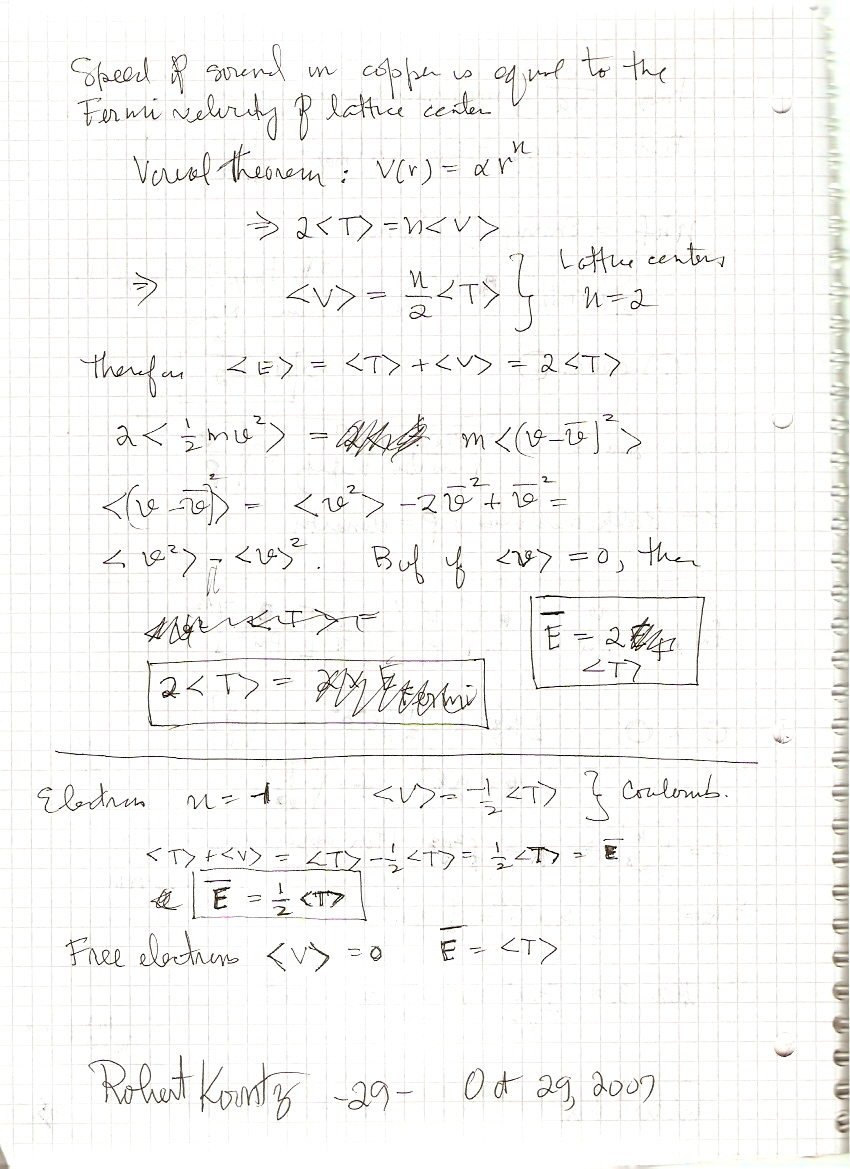 Speed of sound in copper is equal to the
Fermi velocity of lattice center
Virial theorem : V(r) = αr^n
⇒ 2<T> = n<V>
⇒ <V> = n/2 <T> } Lattice centers n=2
therefore <E> = <T> + <V> = 2<T>
2< 1/2 mv²> = m<(v-v̅)²>
<(v-v̅)²> = <v²> - 2v̅² + v̅² =
<v²> - <v>². But if <v> = 0, then
E̅ = 2 <T>
2<T> =
Electrons n = -1 <V> = -1/2 <T> } Coulomb.
<T> + <V> = <T> - 1/2 <T> = 1/2 <T> = E̅
E̅ = 1/2 <T>
Free electrons <V> = 0 E̅ = <T>
Robert Kountz -29- Oct 29, 2007